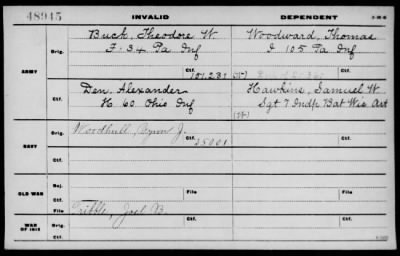 48945 INVALID DEPENDENT 3-38-B
Buck, Theodore W. Woodward, Thomas
Orig. F. 34 Pa Inf I 105 Pa Inf
Ctf. 101.231
ARMY
Den, Alexander Hawkins, Samuel W.
H. 60 Ohio Inf Sgt 7 Indp. Bat Wis. Art
Ctf.
Woodhull, Byron J.
Orig. Ctf. 35001
NAVY
Ctf.
Rej.
OLD WAR Ctf. File File
Tribble, Joel B.
WAR OF 1812 Orig. Ctf. Ctf.
Ctf.